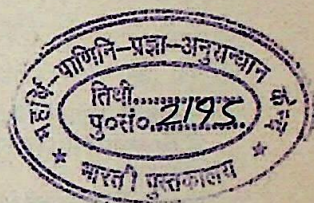 महर्षि–पाणिनि–प्रज्ञा–अनुसन्धान केन्द्र
तिथी..............
पु०सं०..2195
* भारती पुस्तकालय *